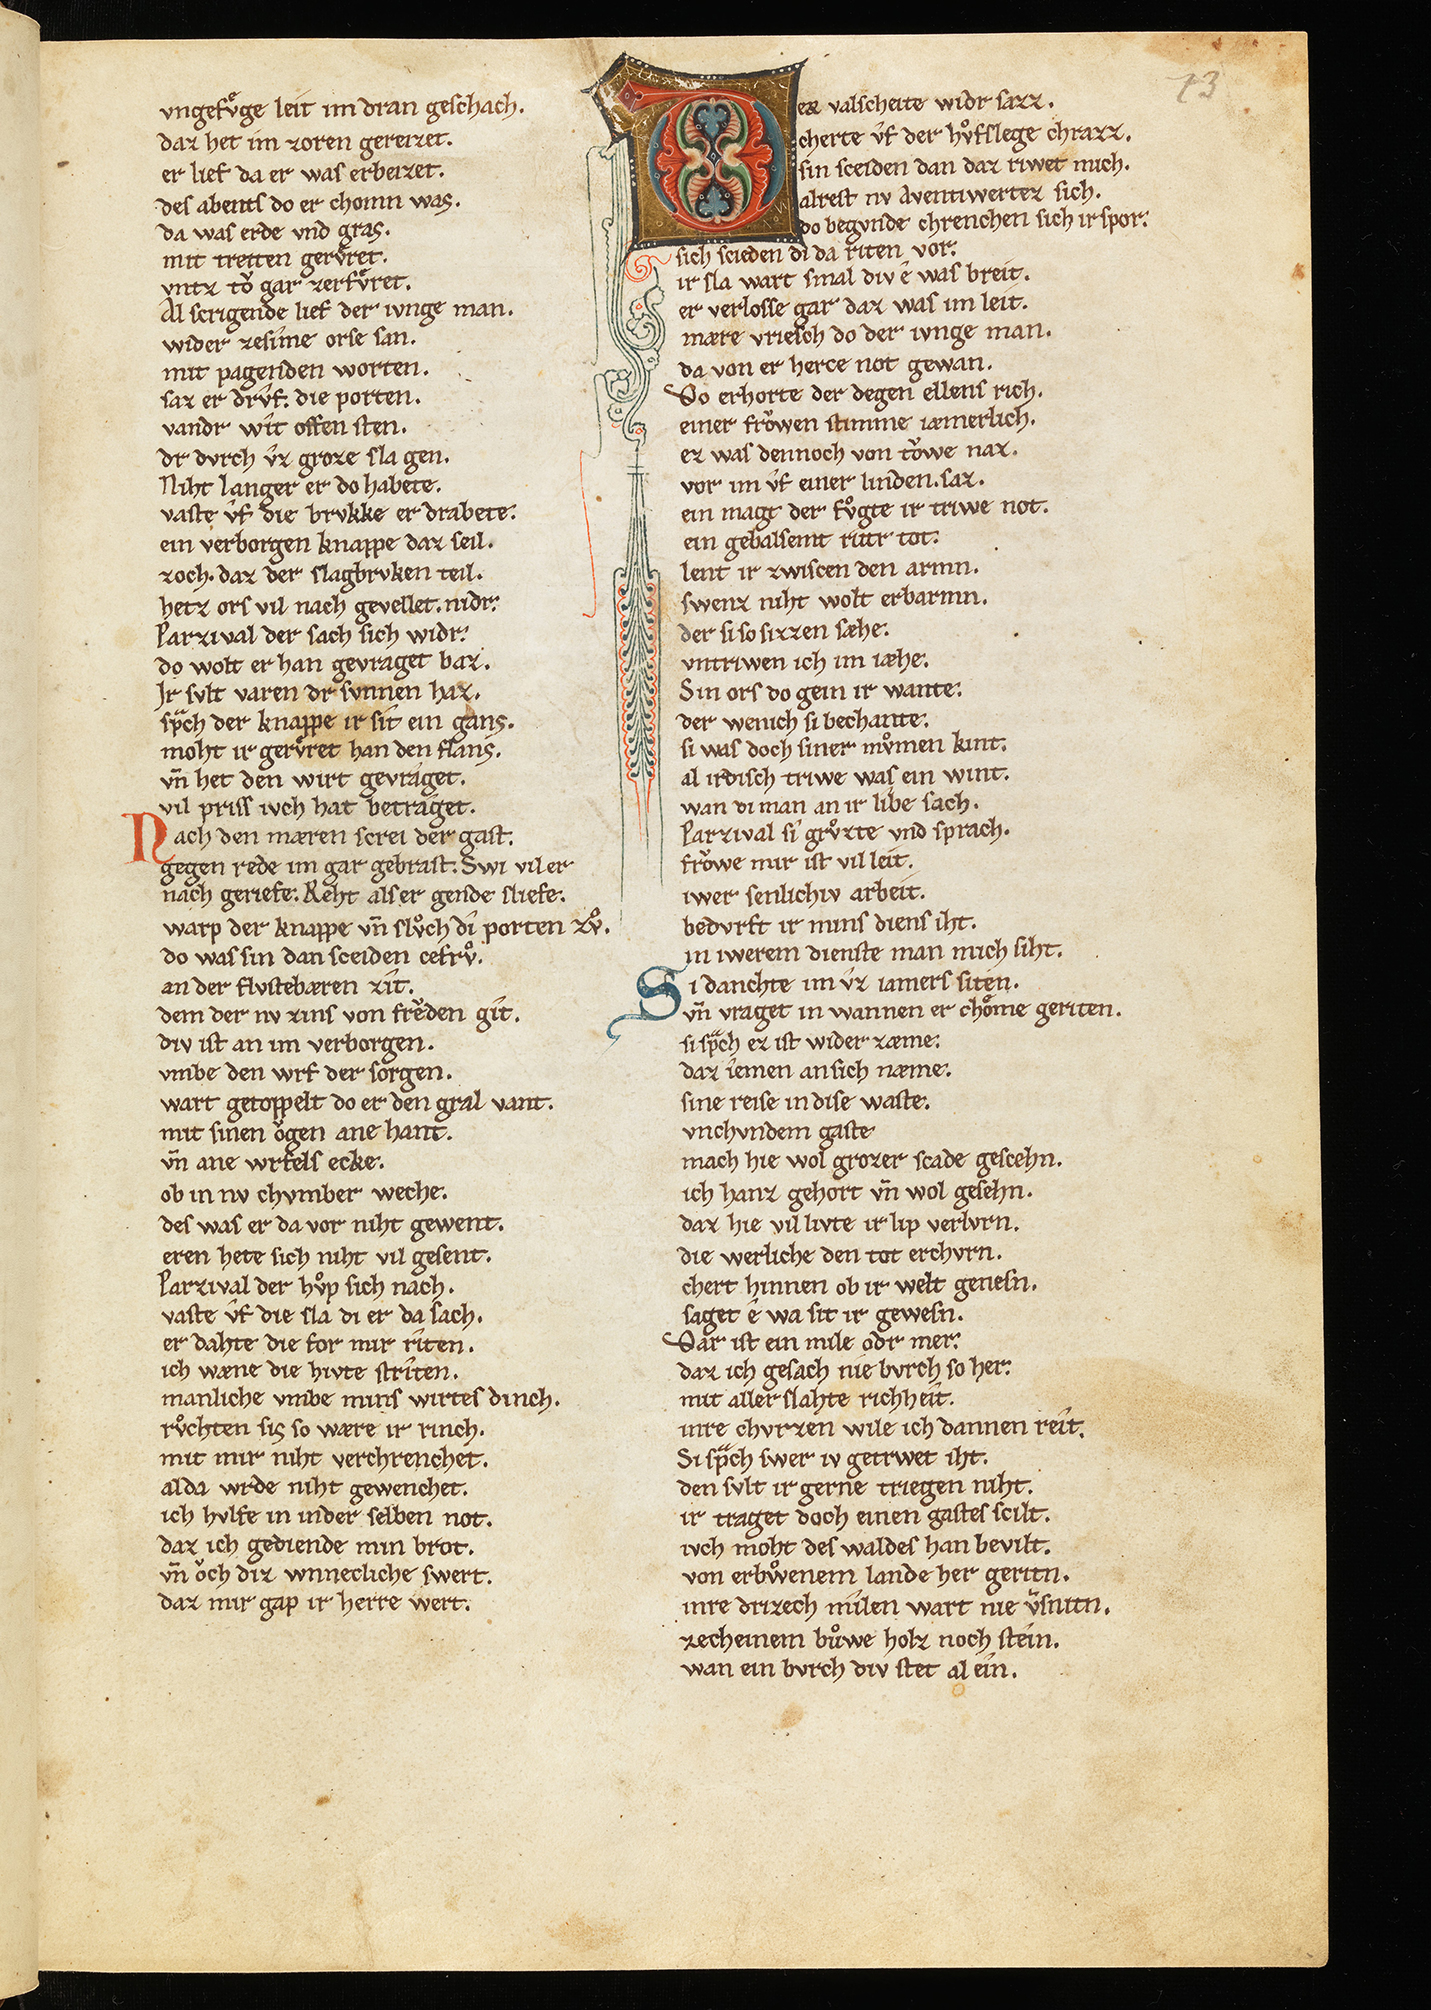 vngefvͤge leit im dran geschach.
daz het im zoren gereizet.
er lief da er was erbeizet.
des abents do er chomn was.
da was erde vnd gras.
mit tretten gervͤret.
vntz tǒ gar zerfvͤret.
Al scrigende lief der ivnge man.
wider zesime orse san.
mit pagenden worten.
saz er drv̂f. die porten.
vandr wît offen sten.
dr dvrch v̂z groze sla gen.
Niht langer er do habete.
vaste v̂f die brvkke er drabete.
ein verborgen knappe daz seil.
zoch. daz der slagbrvken teil.
hetz ors vil nach gevellet. nidr.
Parzival der sach sich widr.
do wolt er han gevraget baz.
Jr svlt varen dr svnnen haz.
spͣch der knappe ir sît ein gans.
moht ir gervͤret han den flans.
vn̄ het den wirt gevraget.
vil priss ivch hat betraget.
Nach den mæren screi der gast.
gegen rede im gar gebrast. Swi vil er
nach geriefe. Reht als er gende sliefe.
warp der knappe vn̄ slvͦch di porten zvͦ.
do was sin dan sceiden cefrvͦ.
an der flvstebæren zît.
dem der nv zins von frěden gît.
div ist an im verborgen.
vmbe den wrf der sorgen.
wart getoppelt do er den gral vant.
mit sinen ǒgen ane hant.
vn̄ ane wrfels ecke.
ob in nv chvmber weche.
des was er da vor niht gewent.
eren hete sich niht vil gesent.
Parzival der hvͦp sich nach.
vaste v̂f die sla di er da sach.
er dahte die for mir rîten.
ich wæne die hivte strîten.
manliche vmbe mins wirtes dinch.
rvͦchten sis so wære ir rinch.
mit mir niht verchrenchet.
alda wrde niht gewenchet.
ich hvlfe in inder selben not.
daz ich gediende min brot.
vn̄ ǒch diz wnnecliche swert.
daz mir gap ir herre wert.
Der valscheite widr sazz.
cherte v̂f der hvͦfslege chrazz.
sin sceiden dan daz riwet mich.
alrest nv Aventiwertez sich.
do begvnde chrenchen sich ir spor.
sich scieden di da riten vor.
ir sla wart smal div ê was breit.
er verlosse gar daz was im leit.
mære vriesch do der ivnge man.
da von er herce not gewan.
Do erhorte der degen ellens rich.
einer frǒwen stimme iæmerlich.
ez was dennoch von tǒwe naz.
vor im v̂f einer linden. saz.
ein magt der fvͦgte ir triwe not.
ein gebalsemt ritr tot.
lent ir zwiscen den armn.
swenz niht wolt erbarmn.
der si so sizzen sæhe.
vntriwen ich im iæhe.
Sin ors do gein ir wante.
der wenich si bechante.
si was doch siner mvͦmen kint.
al irdisch triwe was ein wint.
wan di man an ir libe sach.
Parzival si grvͦzte vnd sprach.
frǒwe mir ist vil leit.
iwer senlichiv arbeit.
bedvrft ir mins diens iht.
in iwerem dienste man mich siht.
Si danchte im v̂z iamers siten.
vn̄ vraget in wannen er chǒme geriten.
si spͣch ez ist wider zæme.
daz iemen an sich næme.
sine reise in dise waste.
vnchvndem gaste
mach hie wol grozer scade gescehn.
ich hanz gehort vn̄ wol gesehn.
daz hie vil livte ir lip verlvrn.
die werliche den tot erchvrn.
chert hinnen ob ir welt genesn.
saget ê wa sit ir gewesn.
Dar ist ein mile odr mer.
daz ich gesach nie bvrch so her.
mit aller slahte richheit.
inre chvrzen wile ich dannen reit.
Si spͣch swer iv getrwet iht.
den svlt ir gerne triegen niht.
ir traget doch einen gastes scilt.
ivch moht des waldes han bevilt.
von erbvͦwenem lande her geritn.
inre drizech mîlen wart nie v̂snitn.
zecheinem bvͦwe holz noch stein.
wan ein bvrch div stet al ein.
73